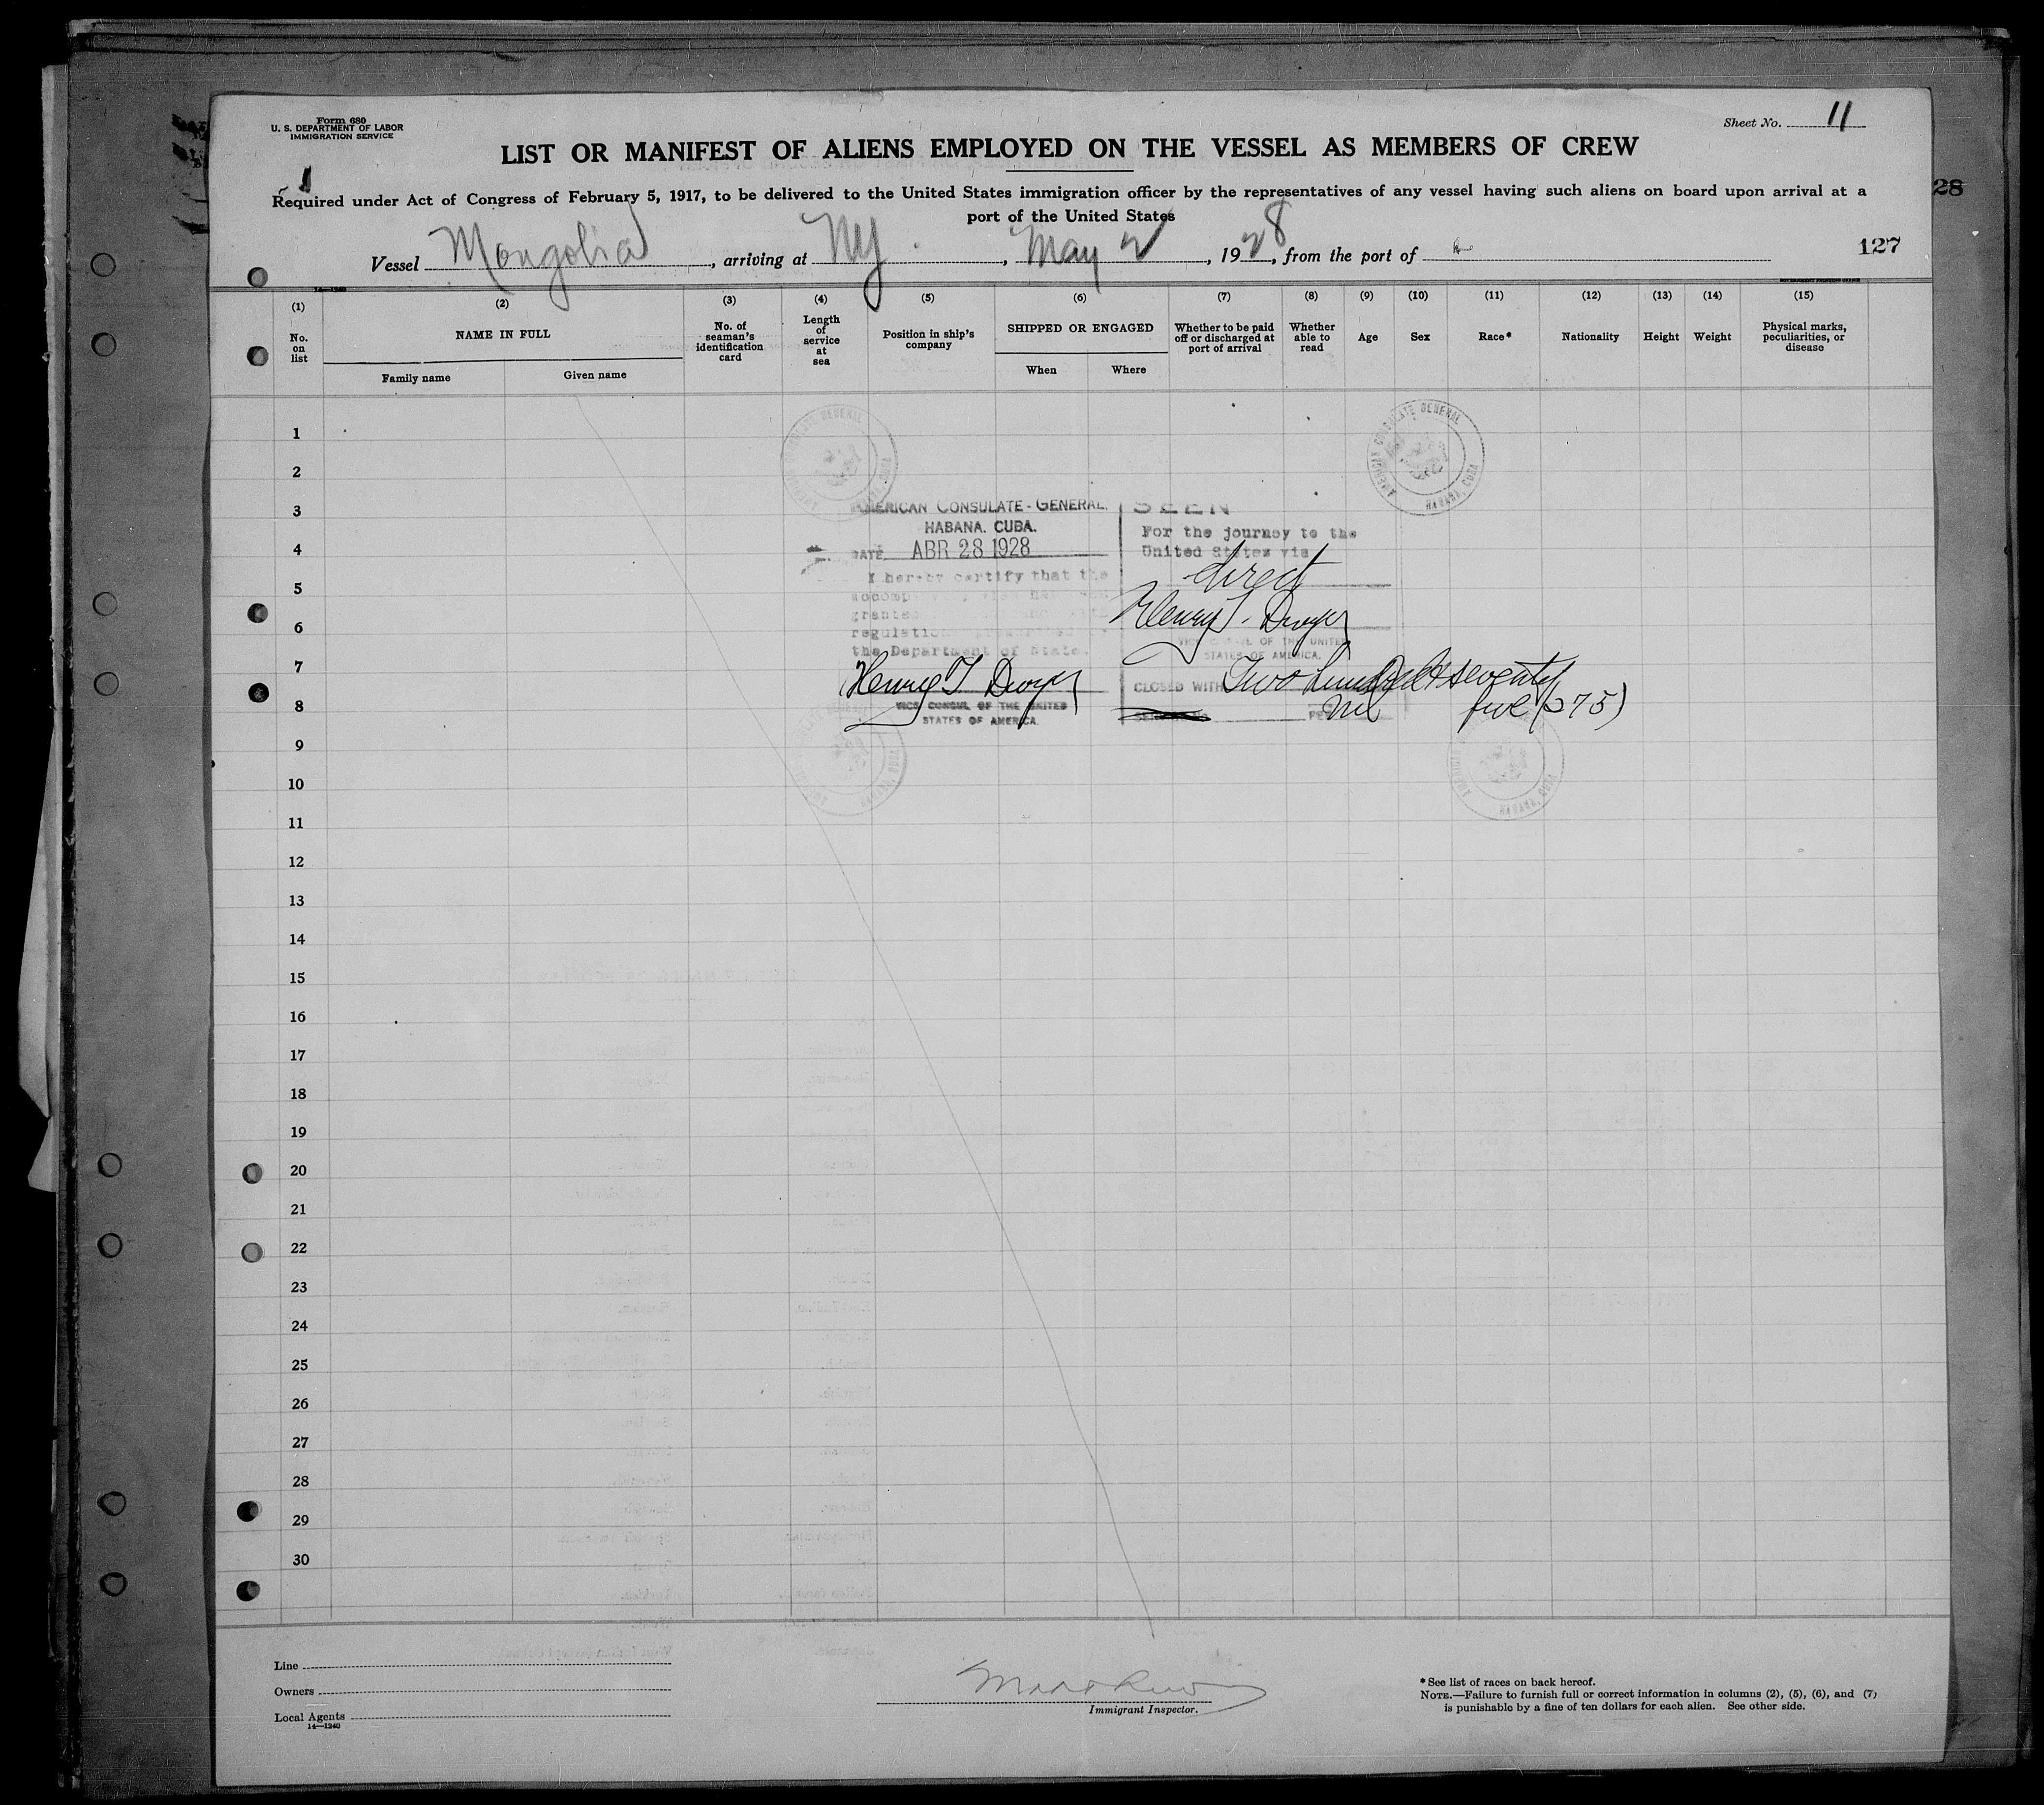 Form 680
U. S. DEPARTMENT OF LABOR
IMMIGRATION SERVICE
Sheet No. 11
LIST OR MANIFEST OF ALIENS EMPLOYED ON THE VESSEL AS MEMBERS OF CREW
1
Required under Act of Congress of February 5, 1917, to be delivered to the United States immigration officer by the representatives of any vessel having such aliens on board upon arrival at a
port of the United States
28
Vessel Mongolia, arriving at NY., May 2, 1928, from the port of
127
14—1240
GOVERNMENT PRINTING OFFICE
(1) (2) (3) (4) (5) (6) (7) (8) (9) (10) (11) (12) (13) (14) (15)
No. on list
NAME IN FULL
Family name
Given name
No. of seaman's identification card
Length of service at sea
Position in ship's company
SHIPPED OR ENGAGED
When
Where
Whether to be paid off or discharged at port of arrival
Whether able to read
Age
Sex
Race*
Nationality
Height
Weight
Physical marks, peculiarities, or disease
1
2
3
4
5
6
7
8
9
10
11
12
13
14
15
16
17
18
19
20
21
22
23
24
25
26
27
28
29
30
AMERICAN CONSULATE GENERAL
HABANA, CUBA
AMERICAN CONSULATE-GENERAL.
HABANA. CUBA.
DATE ABR 28 1928
I hereby certify that the
regulations
the Department of State.
Henry T. Dwyer
VICE CONSUL OF THE UNITED
STATES OF AMERICA.
SEEN
For the journey to the
United States via
direct
Henry T. Dwyer
VICE CONSUL OF THE UNITED
STATES OF AMERICA.
CLOSED WITH Two hundred & seventy
nil five (275)
Line
Owners
Local Agents
14—1240
Immigrant Inspector.
*See list of races on back hereof.
NOTE.—Failure to furnish full or correct information in columns (2), (5), (6), and (7)
is punishable by a fine of ten dollars for each alien. See other side.